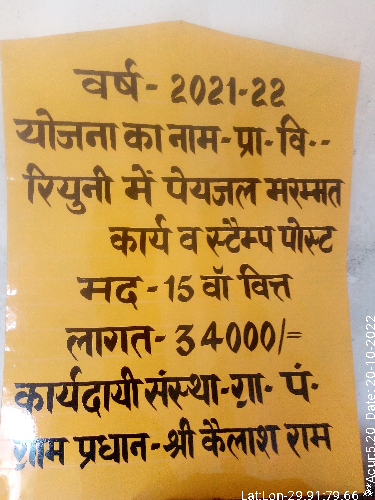 वर्ष - 2021-22
योजना का नाम - प्रा - वि - -
रियुनी में पेयजल मरम्मत
कार्य व स्टैम्प पोस्ट
मद - 15 वॉ वित्त
लागत - 34000/=
कार्यदायी संस्था - ग्रा - पं -
ग्राम प्रधान - श्री कैलाश राम
LatLon-29.91:79.66 ***Acur:5.20 Date: 20-10-2022